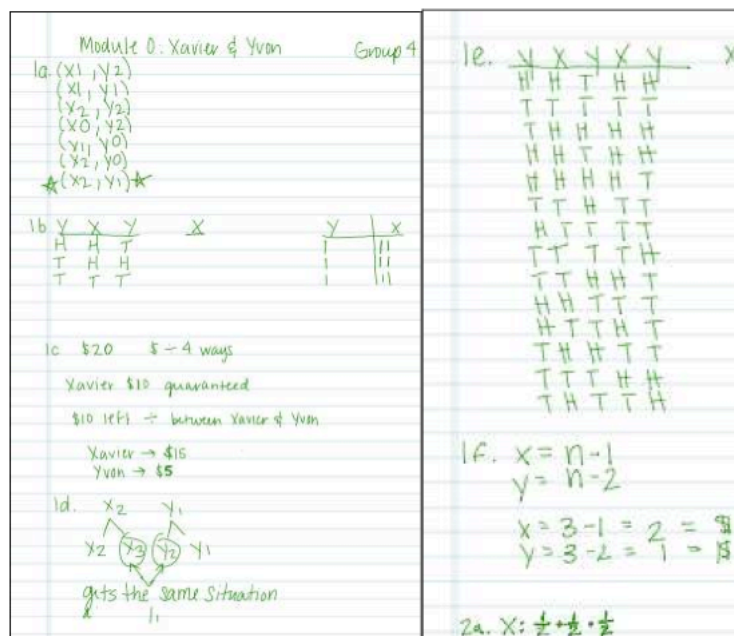 Module 0: Xavier & Yvon Group 4
1a. (X1, Y2)
(X1, Y1)
(X2, Y2)
(X0, Y2)
(X1, Y0)
(X2, Y0)
☆(X2, Y1)☆
1b Y X Y X Y X
H H T | ||
T H H | ||
T T T | ||
1c $20 $ ÷ 4 ways
Xavier $10 guaranteed
$10 left ÷ between Xavier & Yvon
Xavier → $15
Yvon → $5
1d. X2 Y1
X2 X3 Y2 Y1
gets the same situation
1e. Y X Y X Y X
H H T H H
T T T T T
T H H H H
H H T H H
H H H H T
T T H T T
H T T T T
T T T T H
T T H H T
H H T T T
H T T H T
T H H T T
T T T H H
T H T T H
1f. X = n-1
Y = n-2
X = 3-1 = 2 =
Y = 3-2 = 1 =
2a. X: 1/2 + 1/2 · 1/2